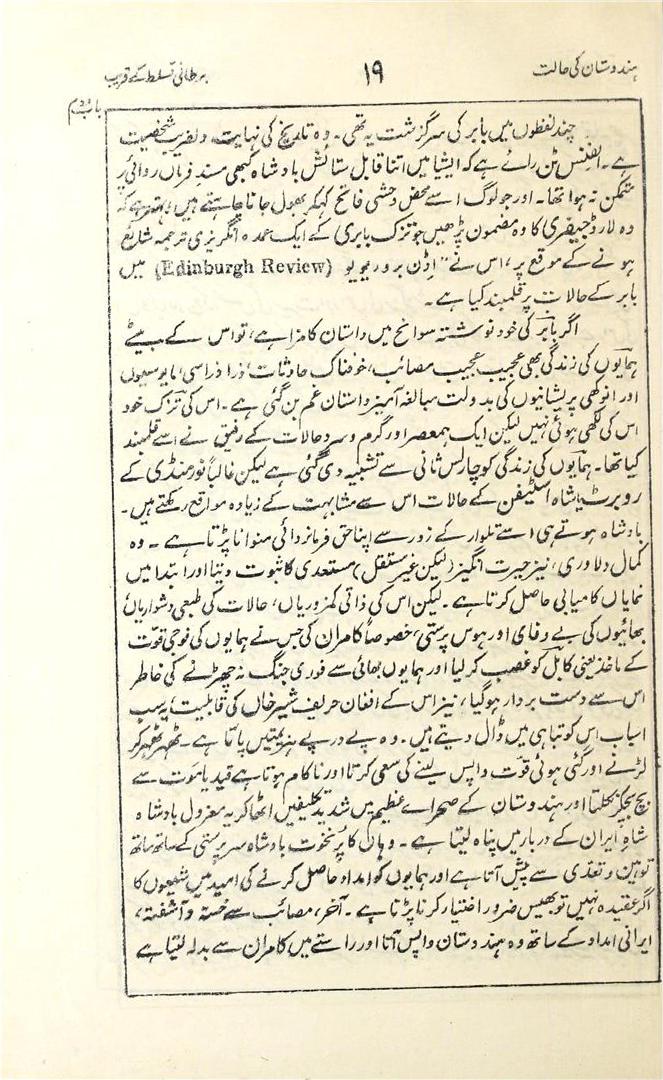 ہندوستان کی حالت
۱۹
برطانی تسلط کے قریب
باب دوم
چند لفظوں میں بابر کی سرگزشت یہ تھی۔ وہ تاریخ کی نہایت دلفریب شخصیت
ہے۔ الفنس ٹن رائے ہے کہ ایشیا میں اتنا قابل ستائش بادشاہ کبھی مسندِ فرماں روائی پر
متمکن نہ ہوا تھا۔ اور جو لوگ اسے محض وحشی فاتح کہکر بھول جانا چاہتے ہیں، بہتر ہے کہ
وہ لارڈ جیفری کا وہ مضمون پڑھیں جو تزک بابری کے ایک عمدہ انگریزی ترجمہ شایع
ہونے کے موقع پر، اس نے "اڈن برو ریویو (Edinburgh Review) میں
بابر کے حالات پر قلمبند کیا ہے۔
اگر بابر کی خود نوشتہ سوانح میں داستان کا مزا ہے، تو اس کے بیٹے
ہمایوں کی زندگی بھی عجیب عجیب مصائب، خوفناک حادثات، ذرا ذرا سی مایوسیوں
اور انوکھی پریشانیوں کی بدولت مبالغہ آمیز داستان غم بن گئی ہے۔ اس کی تزک خود
اس کی لکھی ہوئی نہیں لیکن ایک ہمعصر اور گرم و سرد حالات کے رفیق نے اسے قلمبند
کیا تھا۔ ہمایوں کی زندگی کو چارلس ثانی سے تشبیہ دی گئی ہے لیکن غالباً نورمنڈی کے
روبرٹ یا شاہ اسٹیفن کے حالات اس سے مشابہت کے زیادہ مواقع رکھتے ہیں۔
بادشاہ ہوتے ہی اسے تلوار کے زور سے اپنا حق فرمانروائی منوانا پڑتا ہے۔ وہ
کمال دلاوری، نیز حیرت انگیز (لیکن غیر مستقل) مستعدی کا ثبوت دیتا اور ابتدا میں
نمایاں کامیابی حاصل کرتا ہے۔ لیکن اس کی ذاتی کمزوریاں، حالات کی طبعی دشواریاں
بھائیوں کی بے وفائی اور ہوس پرستی، خصوصاً کامران کی جس نے ہمایوں کی فوجی قوت
کے ماخذ یعنی کابل کو غصب کر لیا اور ہمایوں بھائی سے فوری جنگ نہ چھڑنے کی خاطر
اس سے دست بردار ہو گیا، نیز اس کے افغان حریف شیر خاں کی قابلیت، یہ سب
اسباب اس کو تباہی میں ڈال دیتے ہیں۔ وہ پے در پے ہزیمتیں پاتا ہے۔ ٹھہر ٹھہر کر
لڑنے اور گئی ہوئی قوت واپس لینے کی سعی کرتا اور ناکام ہوتا ہے قید یا موت سے
بچ بچکر نکلتا اور ہندوستان کے صحرائے عظیم میں شدید تکلیفیں اٹھا کر یہ معزول بادشاہ
شاہِ ایران کے دربار میں پناہ لیتا ہے۔ وہاں کا پُرنخوت بادشاہ سرپرستی کے ساتھ ساتھ
توہین و تعدی سے پیش آتا ہے اور ہمایوں کو امداد حاصل کرنے کی امید میں شیعوں کا
اگر عقیدہ نہیں تو بھیس ضرور اختیار کرنا پڑتا ہے۔ آخر، مصائب سے خستہ و آشفتہ،
ایرانی امداد کے ساتھ وہ ہندوستان واپس آتا اور راستے میں کامران سے بدلہ لیتا ہے